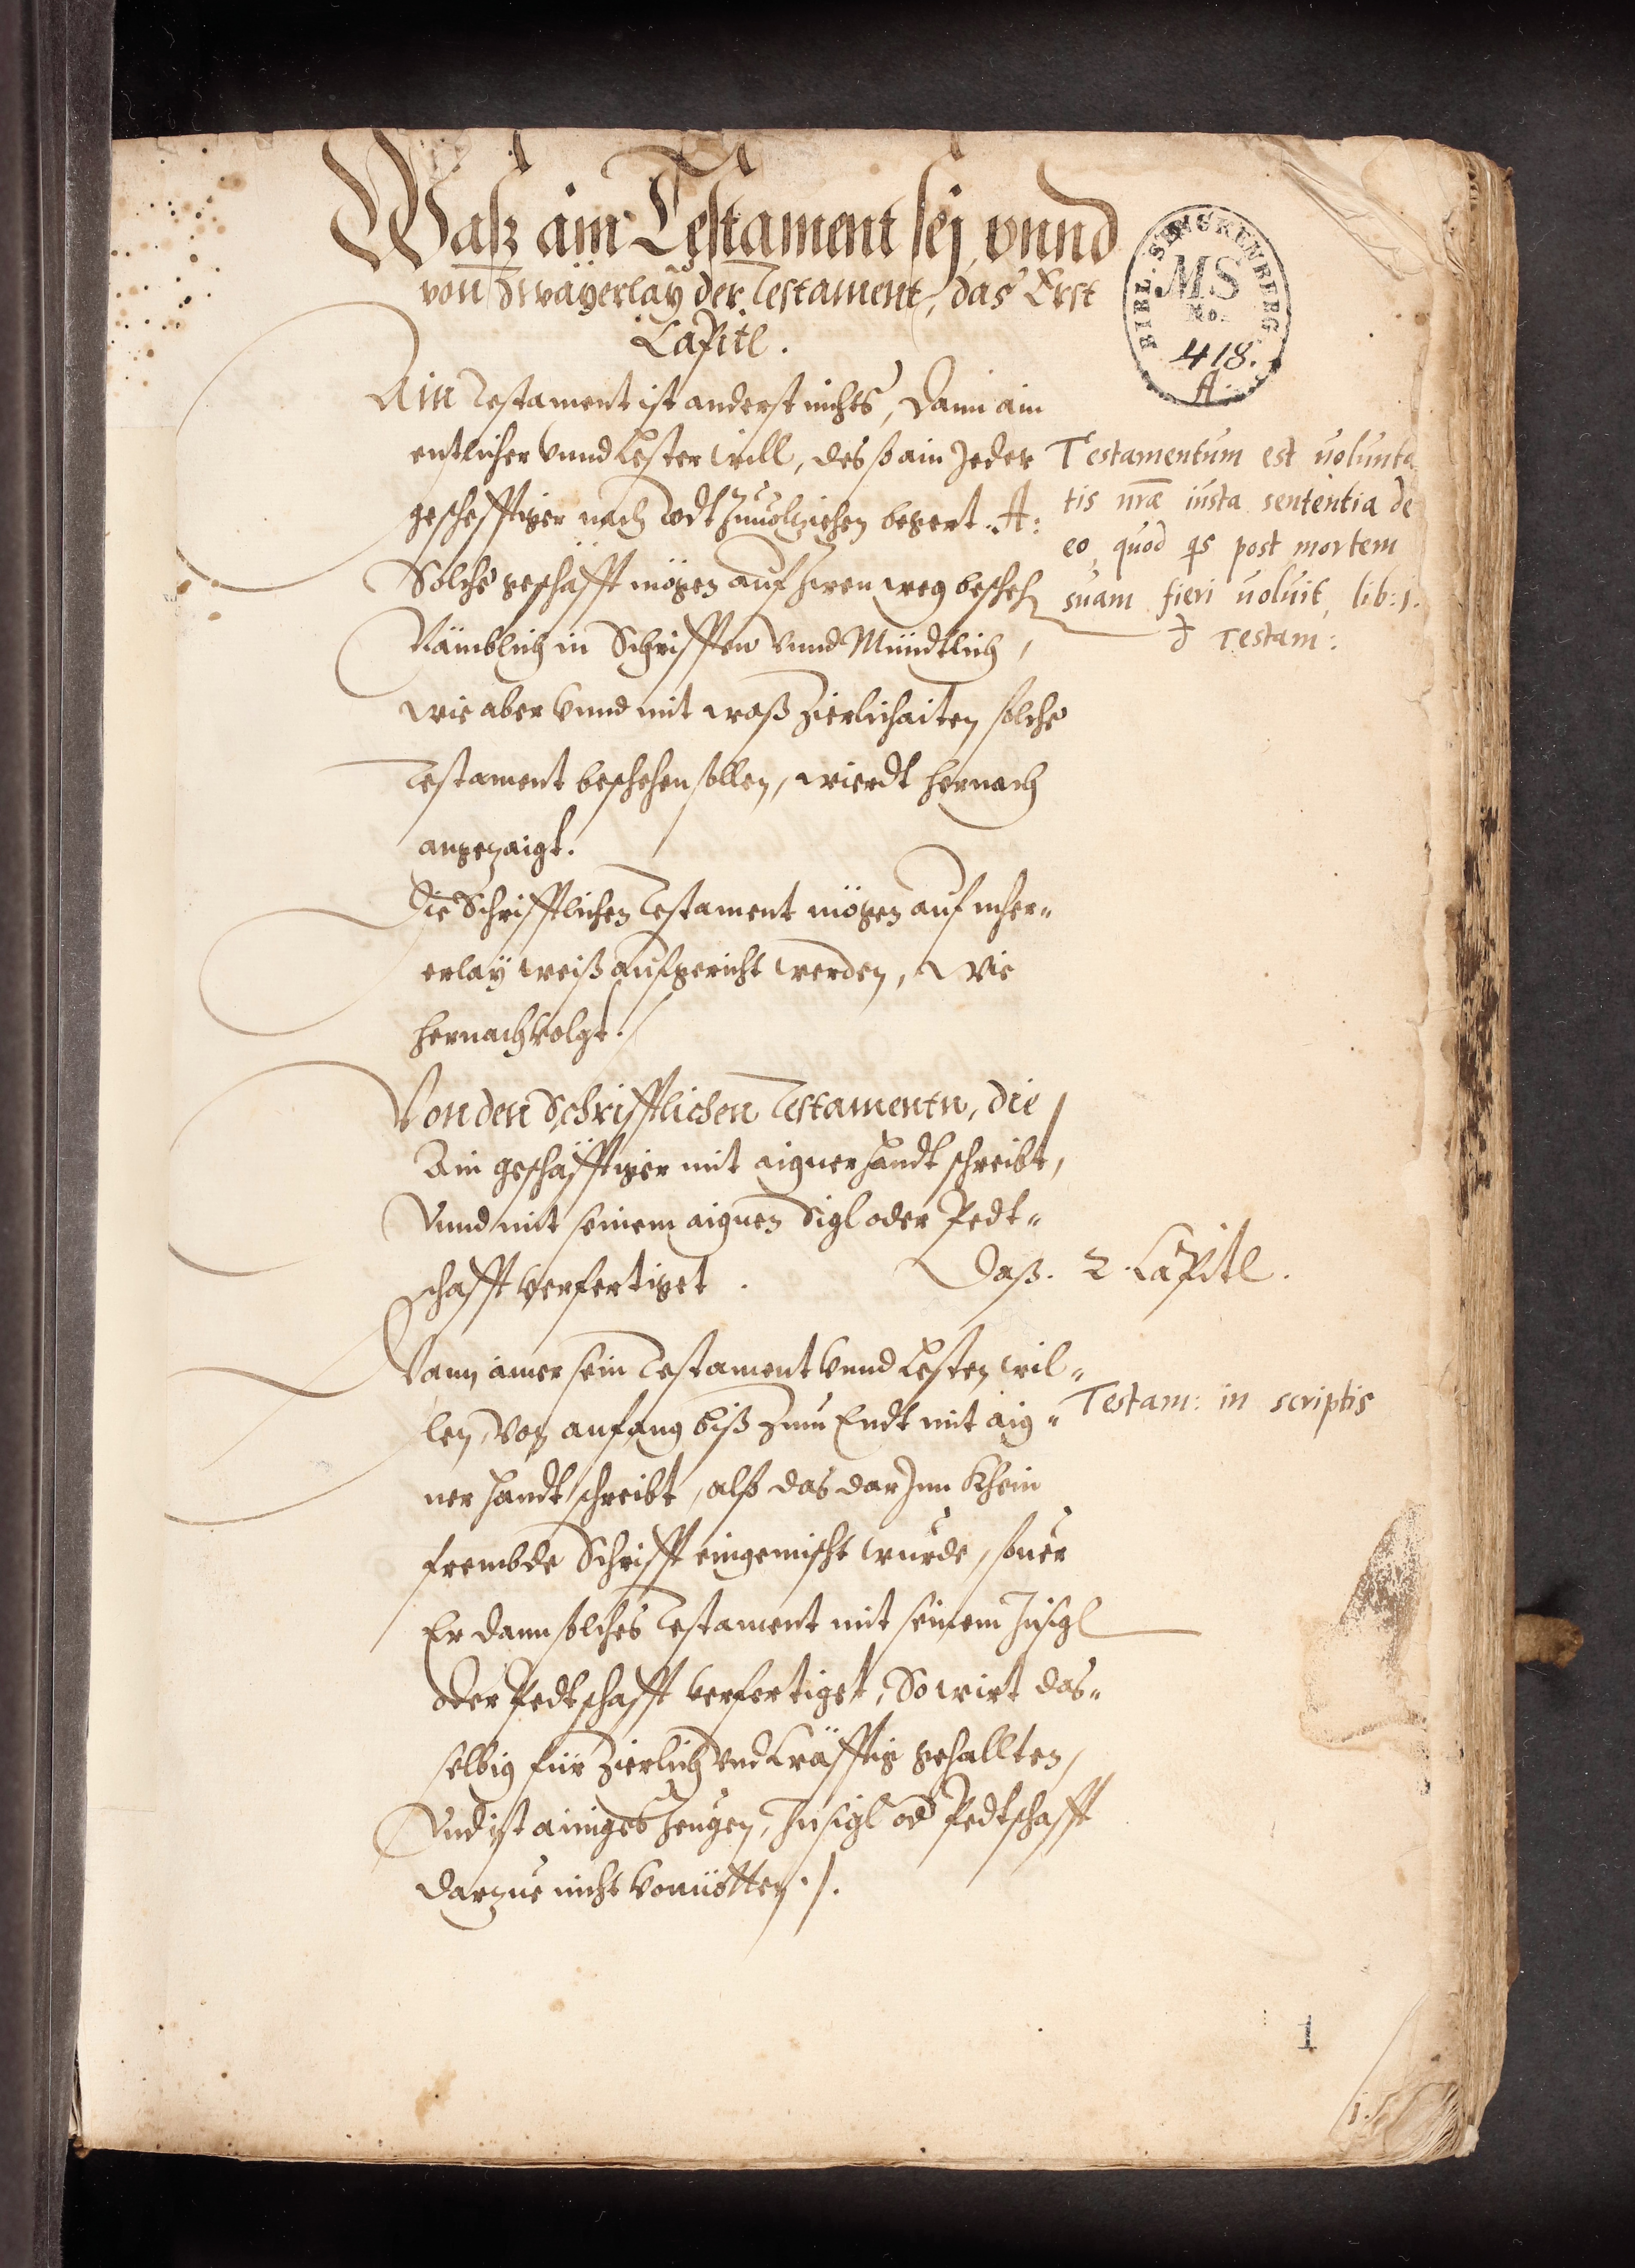 Wasz ain Testament sej vnnd
von Zwayerlaÿ der Testament, das Erst
Capitl.
BIBL. SENCKENBERG.
MS
No.
418.
A.
Ain Testament ist anderst nichts, dann ain
entlicher vnnd Lester will, des so ain Jeder
geschefftiger nach Todt Zuuolziehen begert. A:
Testamentum est uolunta
tis nr̄æ iusta sententia de
eo, quod qs post mortem
suam fieri uoluit, lib: 1.
đ Testam:
Solche geschäfft mögen auf Zween weg bescheh
Nämblich in Schrifften vnnd Mündtlich,
wie aber vnnd mit waß Zierlichaiten solche
Testament beschehen sollen, wierdt hernach
angezaigt.
Die Schrifftlichen Testament mögen auf mher„
erlaÿ weiß aufgericht werden, Wie
hernach volgt.
Von den Schrifftlichen Testamentn, die
Ain geschäfftiger mit aigner handt schreibt,
Vnnd mit seinem aignen Sigl oder Pedt„
schafft verfertiget.
Daß. 2. Capitl.
Wann ainer sein Testament vnnd Lesten wil„
len, Von anfang biß Zum Endt mit aig„
Testam: in scriptis
ner handt schreibt, alß das dar Jnn Khein
frembde Schrifft eingemischt wurde, souer
Er dann solches Testament mit seinem Jnsigl
oder Pedtschafft verfertiget, So wirt das„
selbig für Zierlich vnd Kräfftig gehallten,
Vnd ist ainiges Zeugen, Jnsigl od Pedtschafft
darzue nicht vonnötten ./.
1
1.